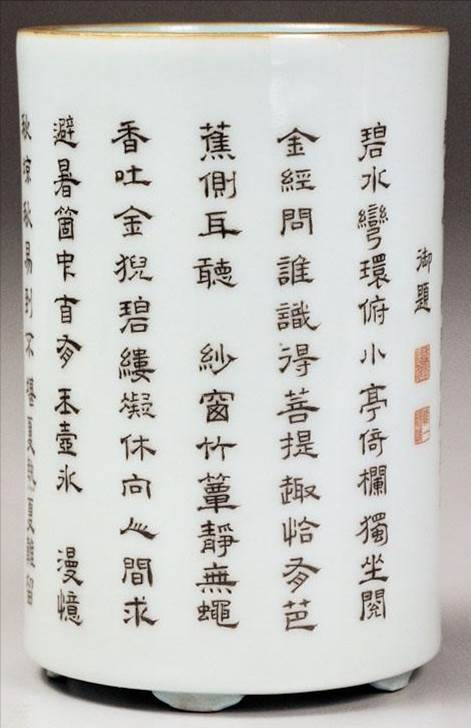 御題
碧水彎環俯小亭倚欄獨坐閱
金經問誰識得菩提趣恰有芭
蕉側耳聽 紗窗竹簟靜無蠅
香吐金猊碧縷凝休向人間求
避暑箇中自有玉壺氷 漫憶
秋涼秋易到不堪夏熱夏難留